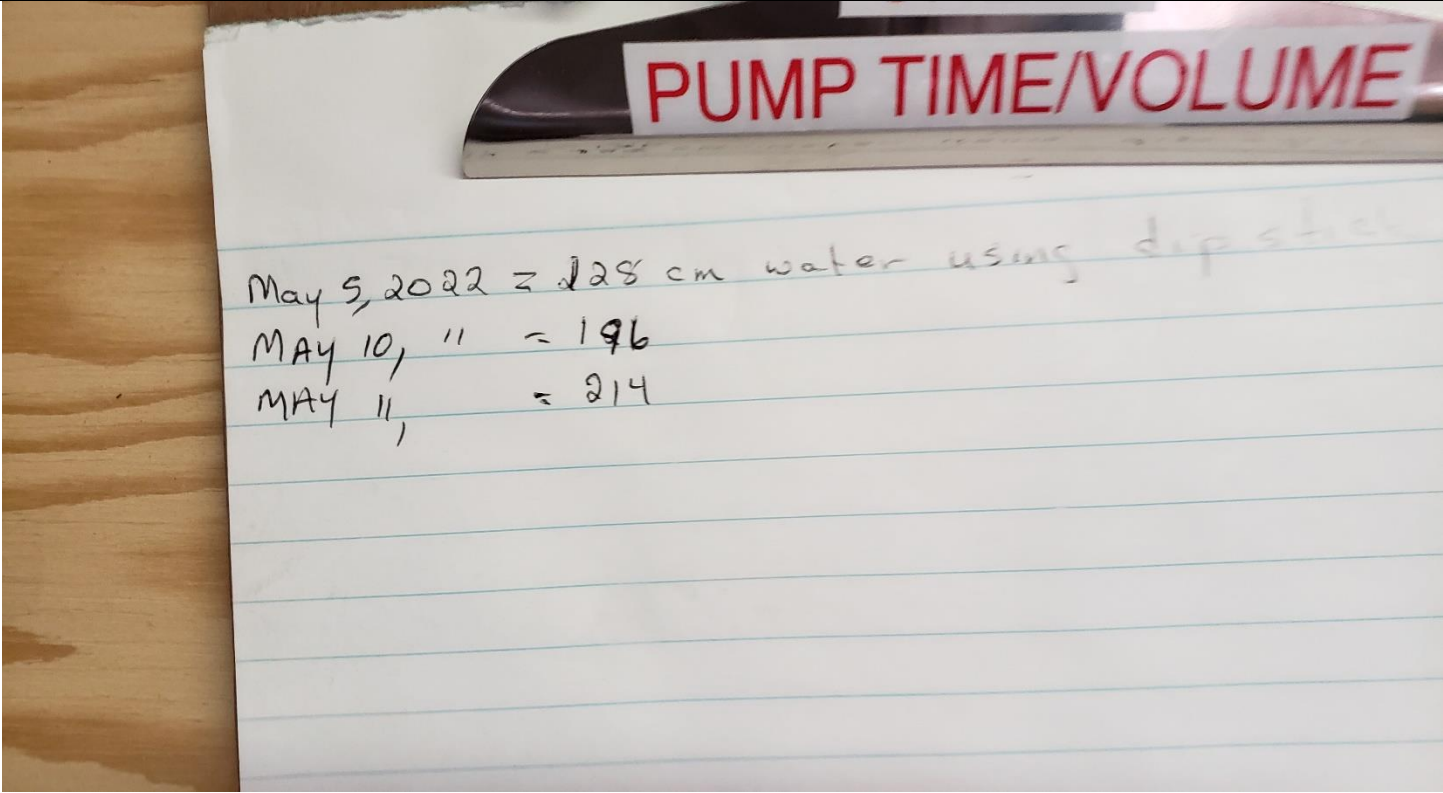 PUMP TIME/VOLUME
May 5, 2022 = 128 cm water using dipstick
MAY 10, " = 196
MAY 11, = 214